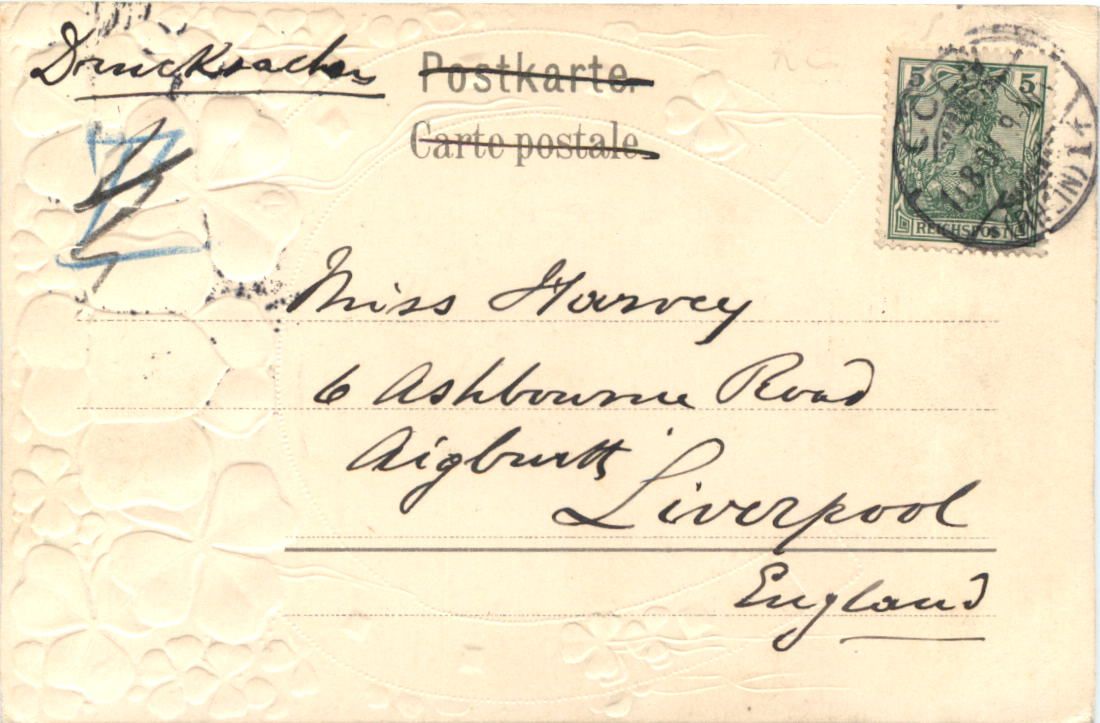 Drucksache
Postkarte
Carte postale
5 5
REICHSPOST
Miss Harvey
6 Ashbourne Road
Aigburth
Liverpool
England